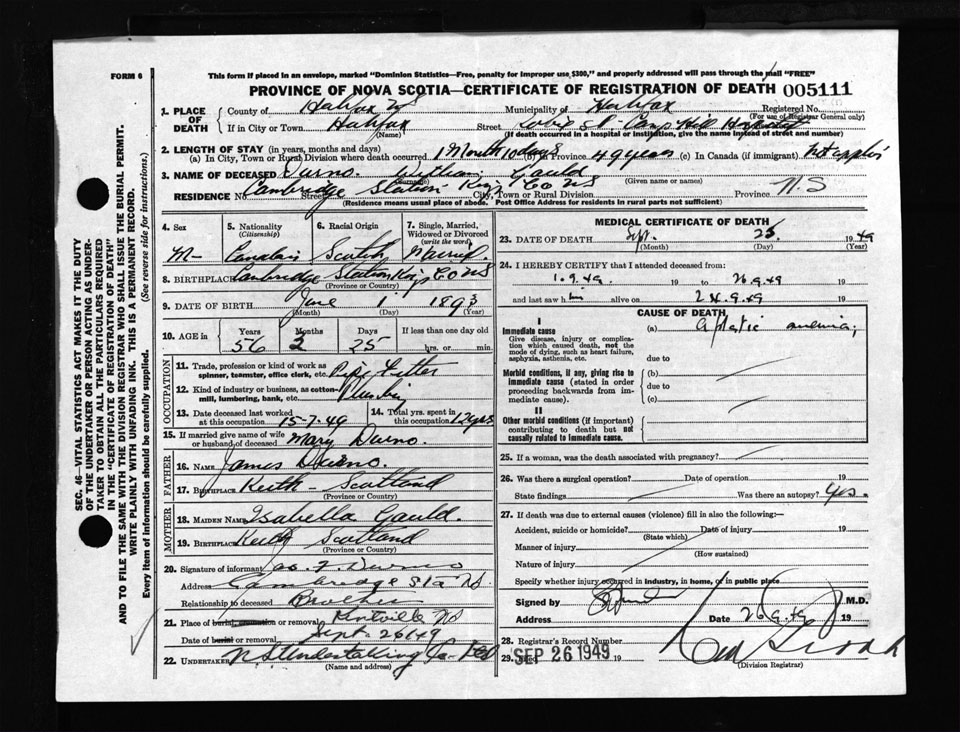 FORM 6
This form if placed in an envelope, marked "Dominion Statistics—Free, penalty for improper use $300," and properly addressed will pass through the mail "FREE"
PROVINCE OF NOVA SCOTIA—CERTIFICATE OF REGISTRATION OF DEATH 005111
1. PLACE OF DEATH
County of Halifax NS Municipality of Halifax Registered No.
(For use of Registrar General only)
If in City or Town Halifax Street St- Camp Hill Hospital
(Name) (If death occurred in a hospital or institution, give the name instead of street and number)
2. LENGTH OF STAY (in years, months and days)
(a) In City, Town or Rural Division where death occurred 1 Month 10 days (b) In Province 49 years (c) In Canada (if immigrant)
3. NAME OF DECEASED Durno. William Gauld
(Surname) (Given name or names)
RESIDENCE No. Street Cambridge Station Kings Co NS City, Town or Rural Division Province N.S
(Residence means usual place of abode. Post Office Address for residents in rural parts not sufficient)
4. Sex
M-
5. Nationality
(Citizenship)
Canadian
6. Racial Origin
Scotch
7. Single, Married, Widowed or Divorced
(write the word)
Married.
8. BIRTHPLACE Cambridge Station Kings Co NS
(Province or Country)
9. DATE OF BIRTH June 1 1893
(Month) (Day) (Year)
10. AGE in Years Months Days If less than one day old
56 2 25 hrs. or min.
OCCUPATION
11. Trade, profession or kind of work as spinner, teamster, office clerk, etc. Pipe Fitter
12. Kind of industry or business, as cotton-mill, lumbering, bank, etc. Plumbing
13. Date deceased last worked at this occupation 15-7-49
14. Total yrs. spent in this occupation 12 yrs
15. If married give name of wife or husband of deceased Mary Durno.
FATHER
16. NAME James Durno.
17. BIRTHPLACE Keith - Scotland
(Province or Country)
MOTHER
18. MAIDEN NAME Isabella Gauld.
19. BIRTHPLACE Keith Scotland
(Province or Country)
20. Signature of informant Jas. F. Durno
Address Cambridge Sta NS.
Relationship to deceased Brother
21. Place of burial, cremation or removal Kentville NS
Date of burial or removal Sept. 26/49
22. UNDERTAKER N.S Undertaking Co Ltd
(Name and address)
MEDICAL CERTIFICATE OF DEATH
23. DATE OF DEATH Sept. 25 1949
(Month) (Day) (Year)
24. I HEREBY CERTIFY that I attended deceased from
1.9.49. 19 to 26.9.49 19
and last saw him alive on 24.9.49 19
CAUSE OF DEATH
I
Immediate cause (a) aplastic anemia
Give disease, injury or complication which caused death, not the mode of dying, such as heart failure, asphyxia, asthenia, etc.
due to
Morbid conditions, if any, giving rise to immediate cause (stated in order proceeding backwards from immediate cause).
(b)
due to
(c)
II
Other morbid conditions (if important) contributing to death but not causally related to immediate cause.
25. If a woman, was the death associated with pregnancy?
26. Was there a surgical operation? Date of operation 19
State findings Was there an autopsy? Yes.
27. If death was due to external causes (violence) fill in also the following:—
Accident, suicide or homicide? Date of injury 19
(State which)
Manner of injury
(How sustained)
Nature of injury
Specify whether injury occurred in industry, in home, or in public place
Signed by M.D.
Address Date 26.9.49 19
28. Registrar's Record Number
29. Filed SEP 26 1949 19
(Division Registrar)
SEC. 46—VITAL STATISTICS ACT MAKES IT THE DUTY
OF THE UNDERTAKER OR PERSON ACTING AS UNDER-
TAKER TO OBTAIN ALL THE PARTICULARS REQUIRED
IN THE "CERTIFICATE OF REGISTRATION OF DEATH"
AND TO FILE THE SAME WITH THE DIVISION REGISTRAR WHO SHALL ISSUE THE BURIAL PERMIT.
WRITE PLAINLY WITH UNFADING INK. THIS IS A PERMANENT RECORD.
Every item of information should be carefully supplied. (See reverse side for instructions.)